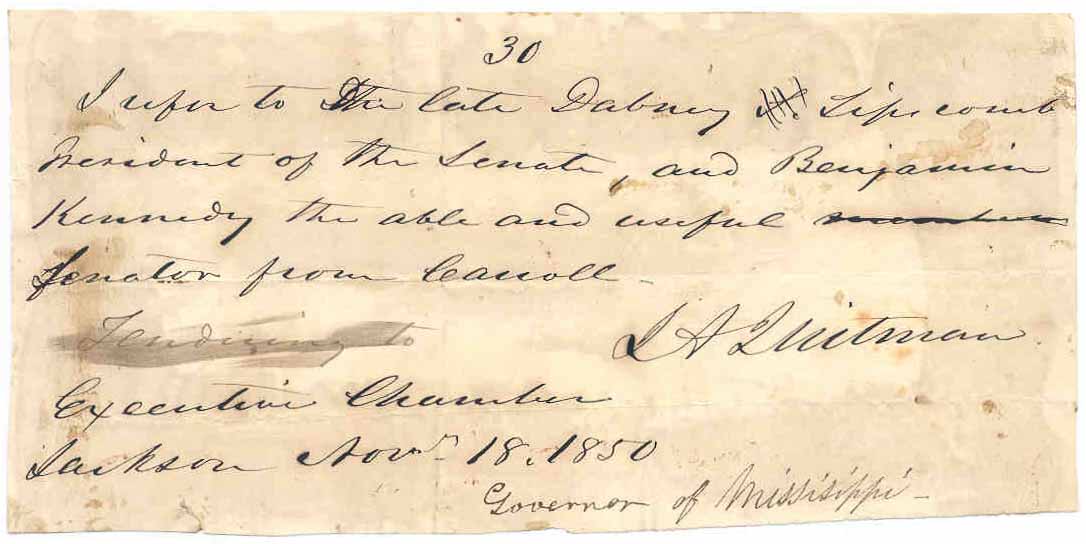 30
I refer to The late Dabney Lipscomb
President of the Senate, and Benjamin
Kennedy the able and useful
Senator from Carroll -
Tendering to
J A Quitman
Executive Chamber
Jackson Novr 18. 1850
Governor of Mississippi -